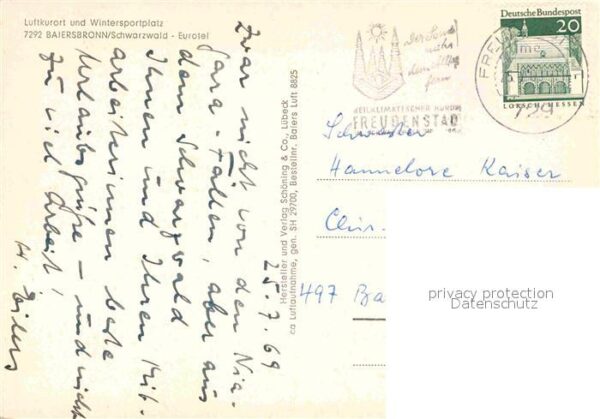 Luftkurort und Wintersportplatz
7292 BAIERSBRONN/Schwarzwald - Eurotel
25.7.69
Zwar nicht von den Nia-
gara-Fällen, aber aus
dem Schwarzwald
Ihnen und Ihren Mit-
arbeiterinnen beste
Urlaubsgrüße - und nicht
zu viel Arbeit!
Hersteller und Verlag Schöning & Co., Lübeck
ca Luftaufnahme, gen. SH 29700, Bestellnr. Baiers Luft 8825
HEILKLIMATISCHER KURORT
FREUDENSTADT
Deutsche Bundespost
20
LORSCH/HESSEN
729
Schwester
Hannelore Kaiser
Chir.
497 Ba
privacy protection
Datenschutz